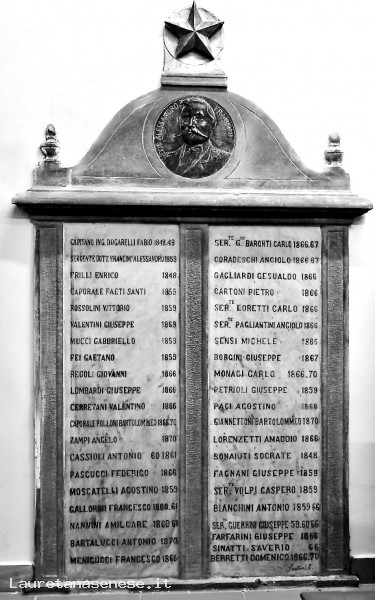 ALESSANDRO FRANCINI
CAPITANO ING. DOGARELLI FABIO 1848.49
SERGENTE DOTT. FRANCINI ALESSANDRO 1859
FRILLI ENRICO 1848
CAPORALE FAETI SANTI 1859
ROSSOLINI VITTORIO 1859
VALENTINI GIUSEPPE 1859
MUCCI GABBRIELLO 1859
FEI GAETANO 1859
REGOLI GIOVANNI 1866
LOMBARDI GIUSEPPE 1866
CERRETANI VALENTINO 1866
CAPORALE POLLONI BARTOLOMMEO 1866.70
ZAMPI ANGELO 1870
CASSIOLI ANTONIO 60 1861
PASCUCCI FEDERIGO 1866
MOSCATELLI AGOSTINO 1859
GALLORINI FRANCESCO 1860.61
NANNINI AMILCARE 1860 61
BARTALUCCI ANTONIO 1870
MENICUCCI FRANCESCO 1866
SER.TE G. BARONTI CARLO 1866.67
CORADESCHI ANGIOLO 1866 67
GAGLIARDI GESUALDO 1866
CARTONI PIETRO 1866
SER.TE LORETTI CARLO 1866
SER.TE PAGLIANTINI ANGIOLO 1866
SENSI MICHELE 1866
BORGINI GIUSEPPE 1867
MONACI CARLO 1866.70
PETRIOLI GIUSEPPE 1859
PACI AGOSTINO 1866
GIANNETTONI BARTOLOMMEO 1870
LORENZETTI AMADDIO 1866
BONAIUTI SOCRATE 1848
FAGNANI GIUSEPPE 1859
SER.TE VOLPI CASPERO 1859
BIANCHINI ANTONIO 1859 66
SER. GUERRINI GIUSEPPE 59.60 66
FARFARINI GIUSEPPE 1866
SINATTI SAVERIO 66
BERRETTI DOMENICO 1866.70
Lauretanasenese.it